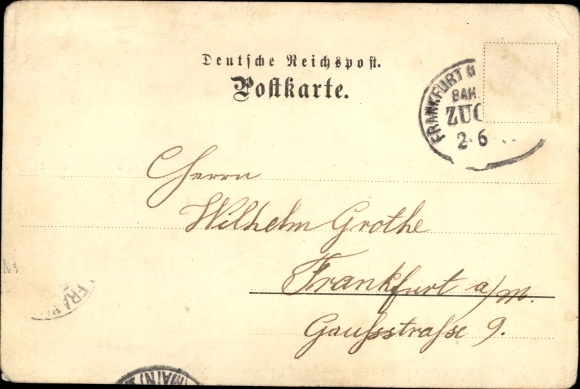 Deutsche Reichspost.
Postkarte.
FRANKFURT
BAH
ZUG
2·6
Herrn
Wilhelm Grothe
Frankfurt a/m.
Gaussstrasse 9.
FRA
MAIN